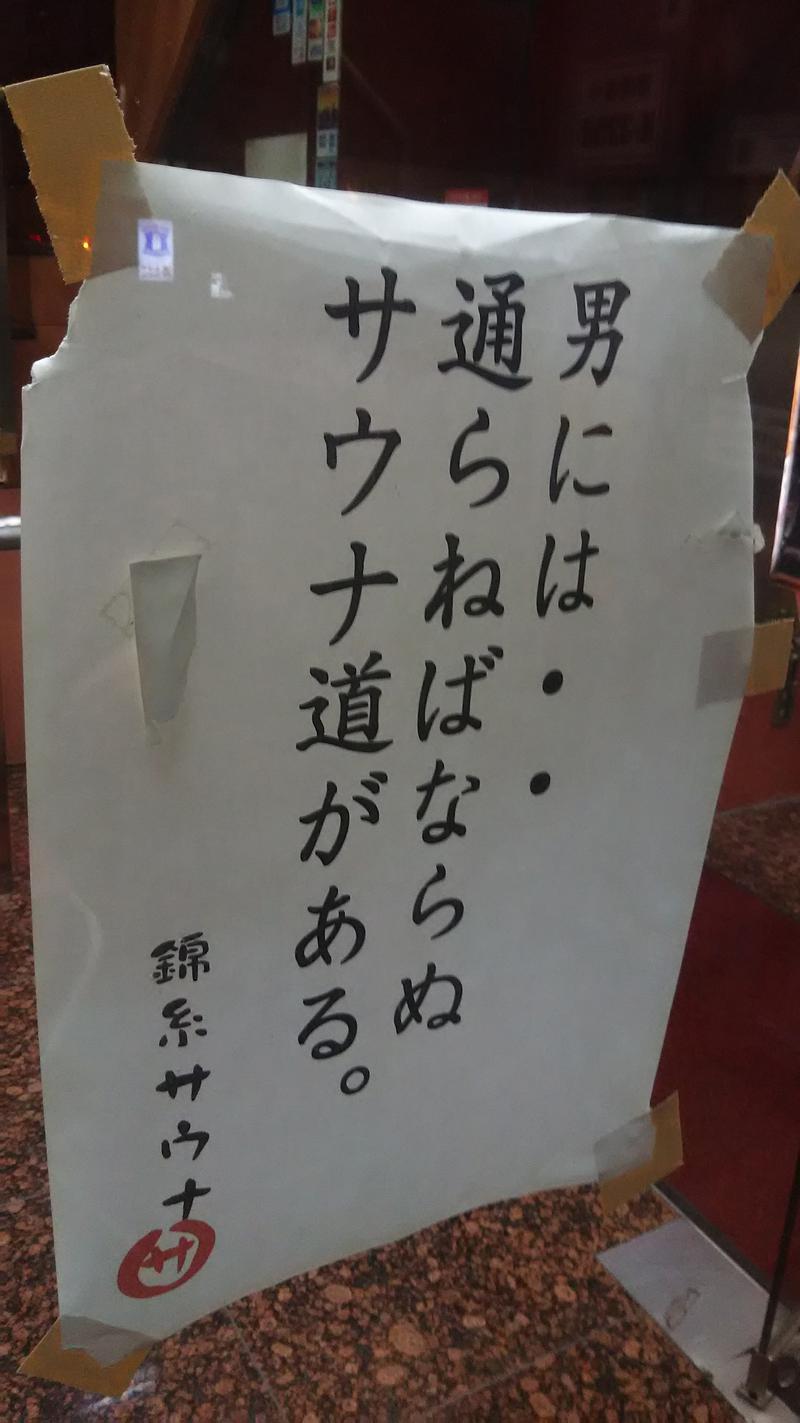 男には・・
通らねばならぬ
サウナ道がある。
錦糸サウナ
サ